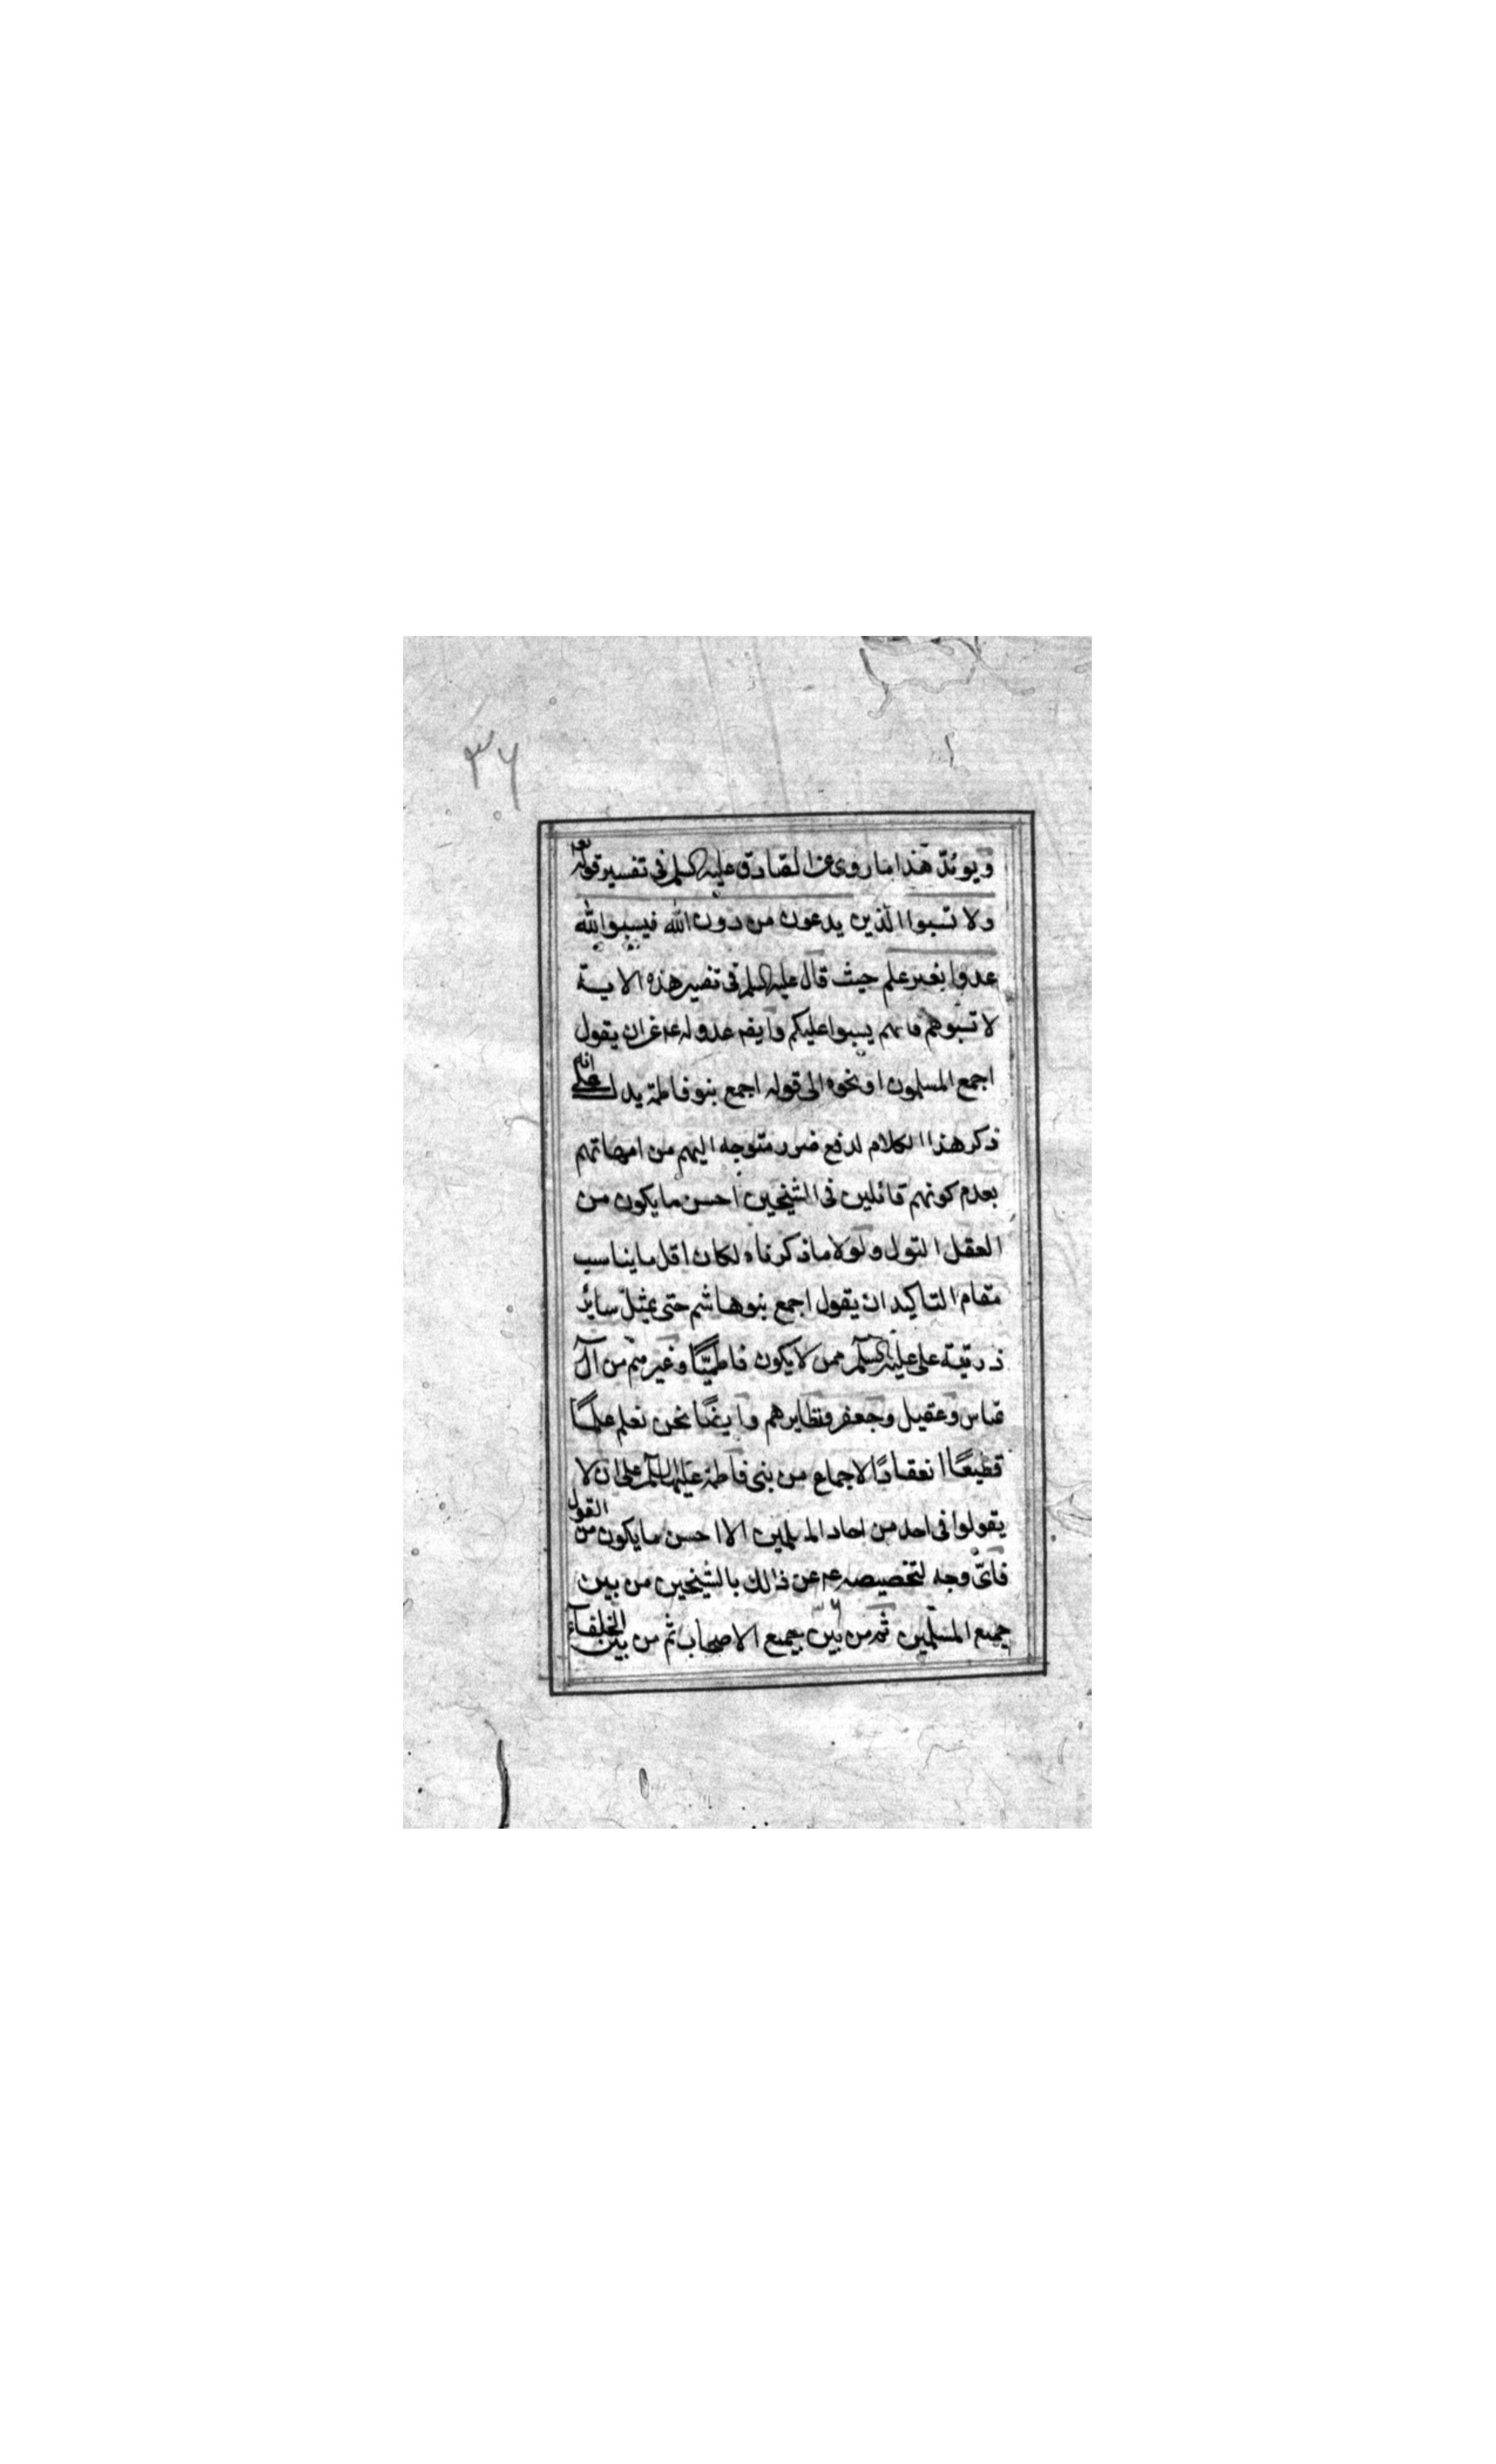 ٣٦
ويؤيد هذا ما روى عن الصادق عليه السلم فى تفسير قوله تع
ولا تسبوا الذين يدعون من دون الله فيسبوا الله
عدوا بغير علم حيث قال عليه السلم فى تفسير هذه الاية
لا تسبوهم فانهم يسبوا عليكم وايضا عدوله عم عن ان يقول
اجمع المسلمون او نحوه الى قوله اجمع بنو فاطمة يدل على انه
ذكر هذا الكلام لدفع ضرر متوجه اليهم من
بعدم كونهم قائلين فى الشيخين احسن ما يكون من
ولولا ما ذكرناه لكان اقل ما يناسب
مقام التاكيد ان يقول اجمع بنو هاشم حتى سائر
ذرية على عليه السلم ممن لا يكون فاطميًا وغيرهم من آل
عباس وعقيل وجعفر ونظايرهم وايضًا نحن نعلم علمًا
قطيعًا انعقاد الاجماع من بنى فاطمة عليها السلم على ان لا
يقولوا فى احد من احاد المسلمين الا احسن ما يكون من القول
فاىّ وجه لتخصيصه عم عن ذالك بالشيخين من بين
جميع المسلمين ثم من بين جميع الاصحاب ثم من بين الخلفآء